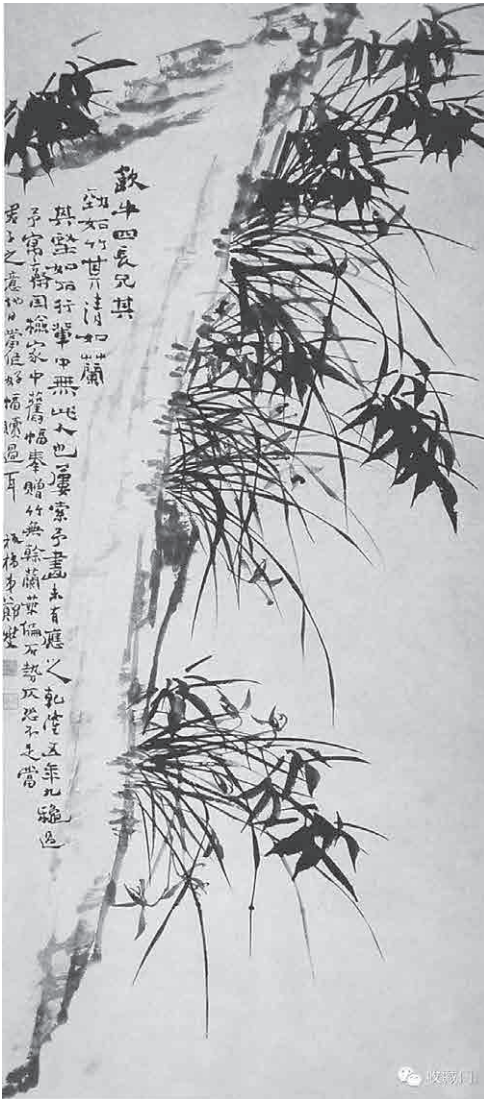 歙牛四長兄其
勁如竹其清如蘭
其堅如石行輩中無此人也屢索予畫未有應之乾隆五年九穐過
予寓齋因檢家中舊幅奉贈竹無餘蘭葉偏石勢仄恐不足當
君子之意他日當作好幅贖過耳 板橋弟鄭燮
收藏